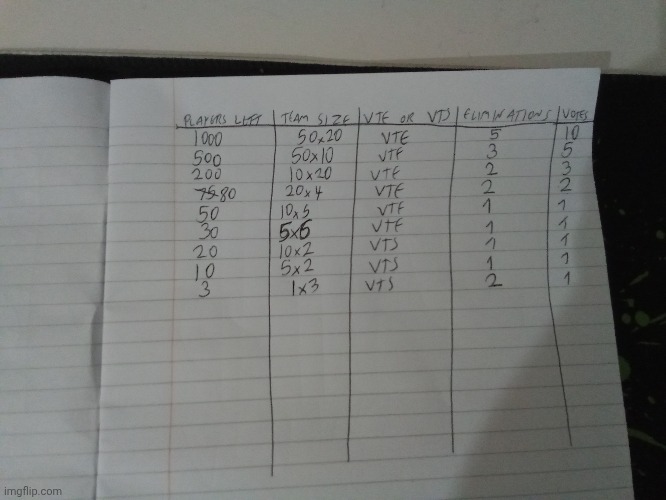 PLAYERS LEFT | TEAM SIZE | VTE OR VTS | ELIMINATIONS | VOTES
1000 50x20 VTE 5 10
500 50x10 VTE 3 5
200 10x20 VTE 2 3
75 80 20x4 VTE 2 2
50 10x5 VTE 1 1
30 5x6 VTE 1 1
20 10x2 VTS 1 1
10 5x2 VTS 1 1
3 1x3 VTS 2 1
imgflip.com